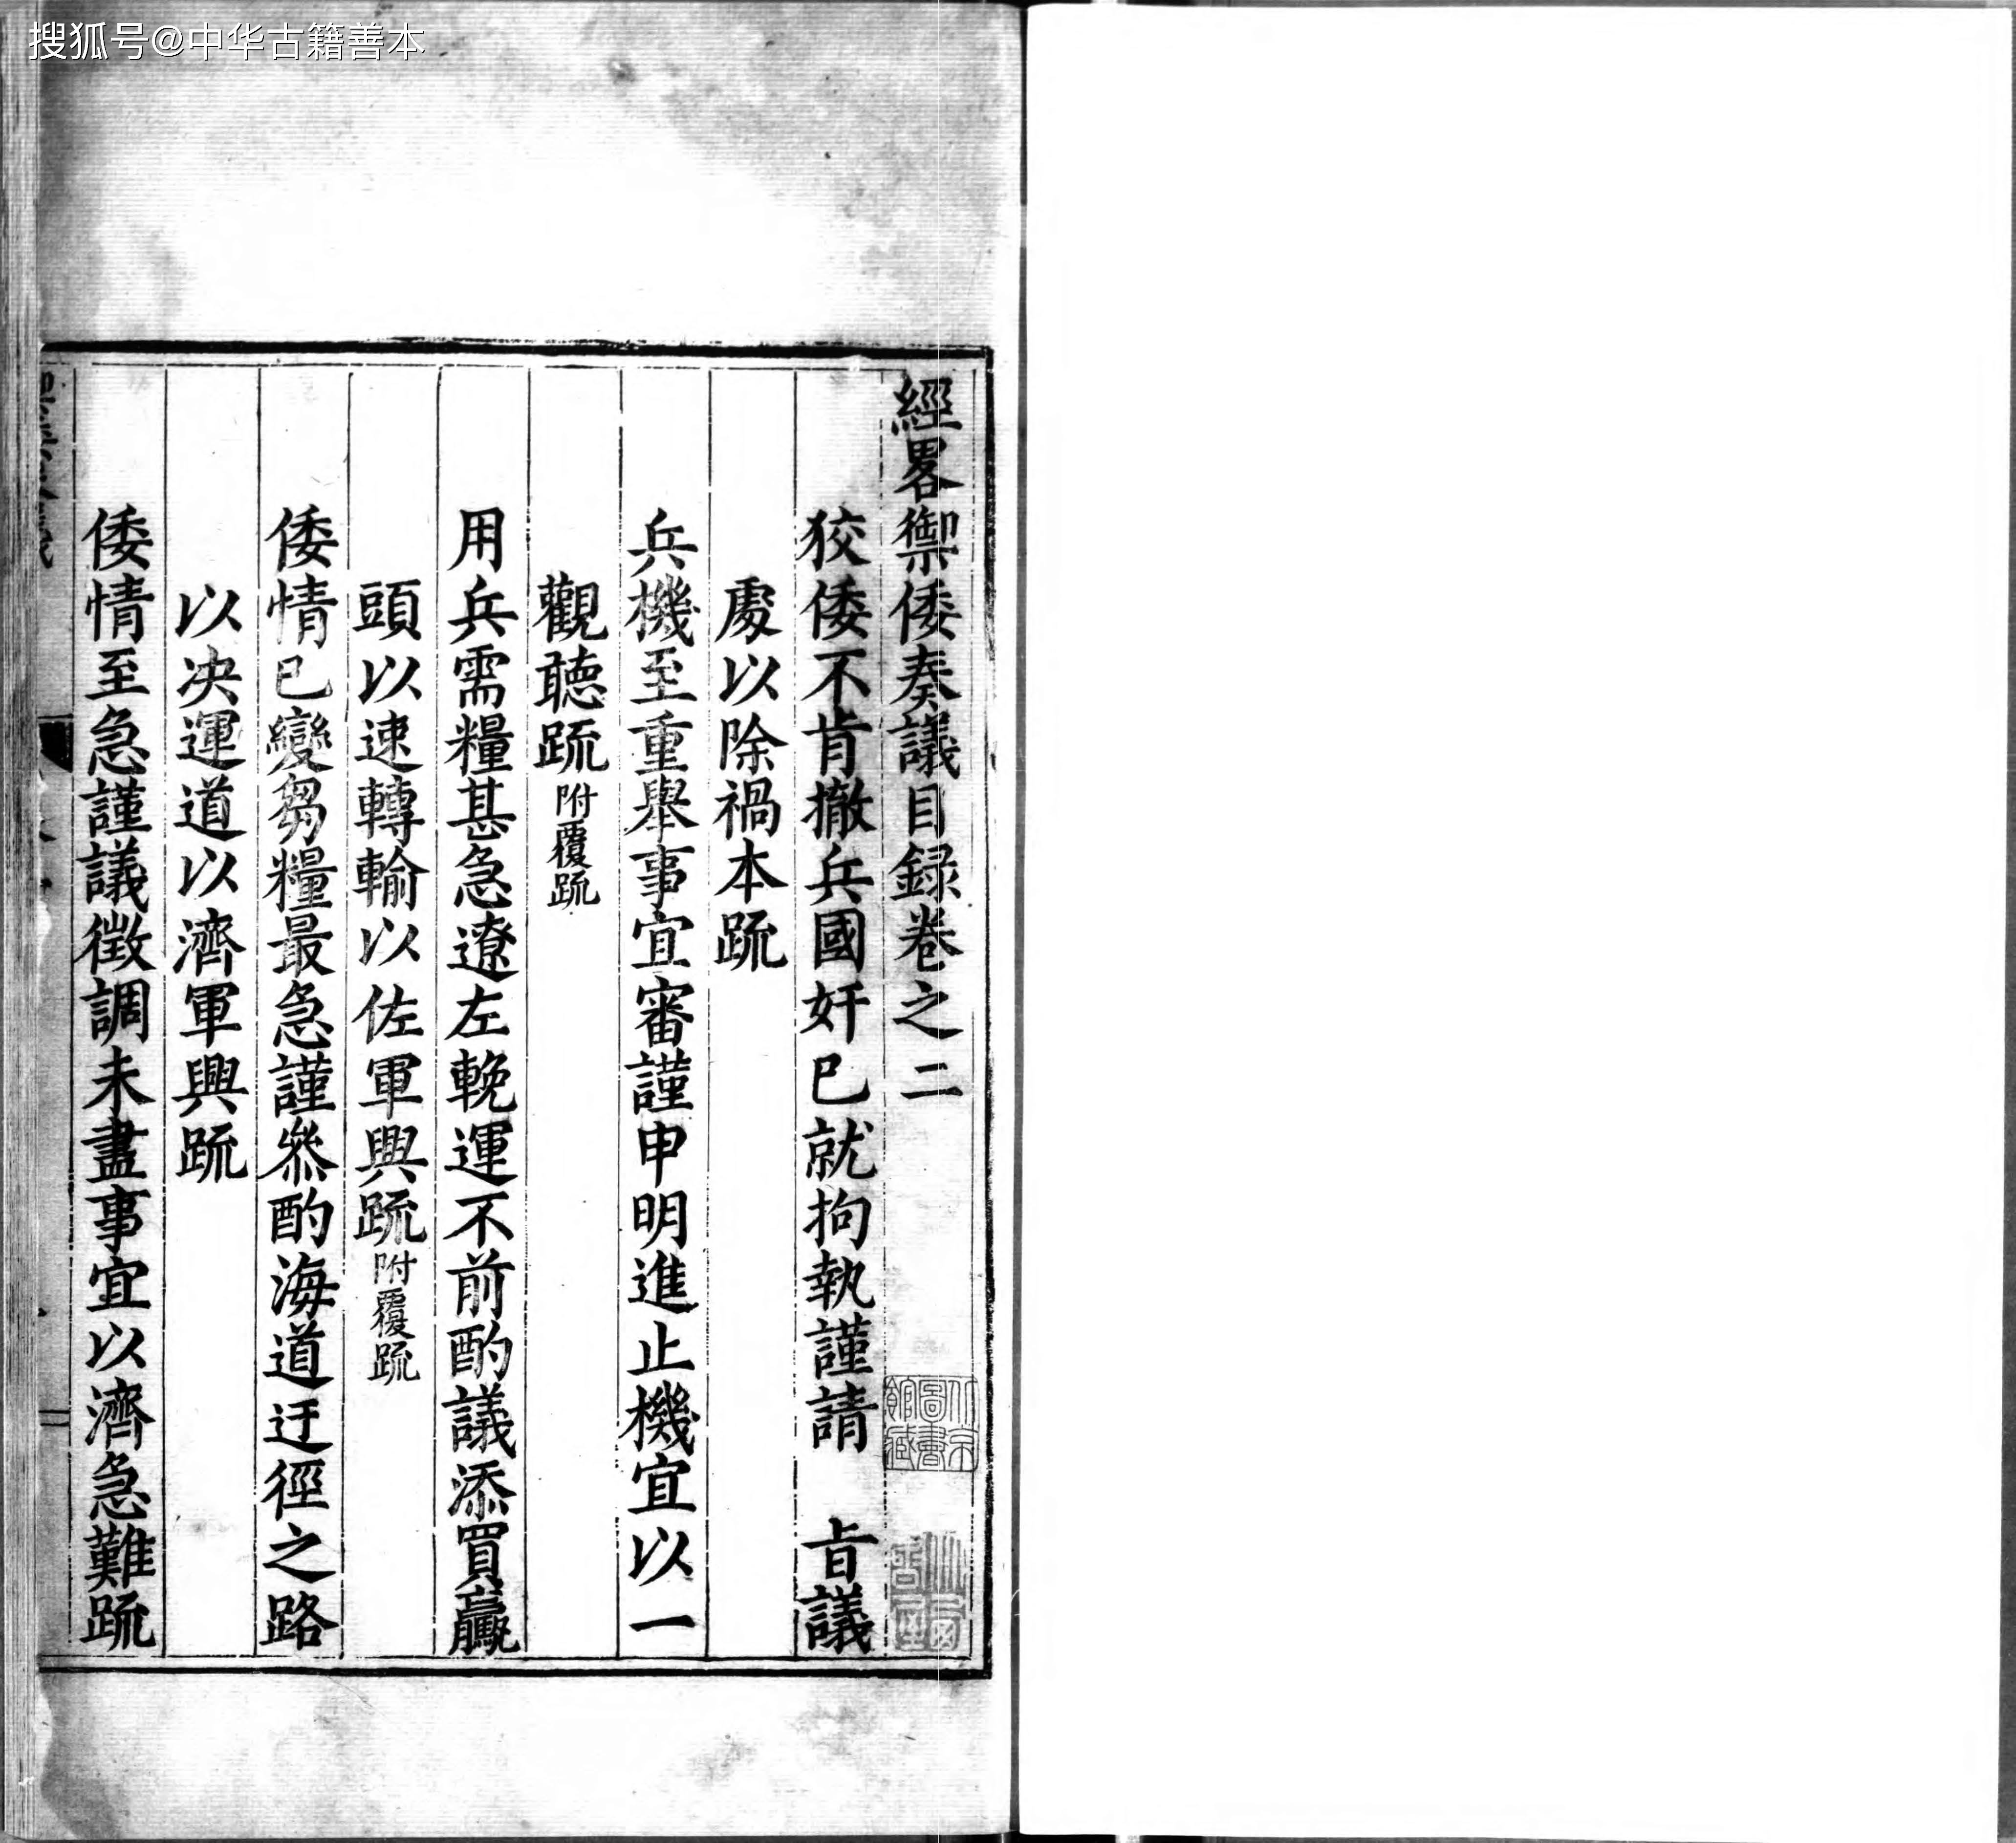 搜狐号@中华古籍善本
經畧禦倭奏議目録卷之二
狡倭不肯撤兵國奸已就拘執謹請　旨議
處以除禍本䟽
兵機至重舉事宜審謹申明進止機宜以一
觀聽䟽附覆䟽
用兵需糧甚急遼左輓運不前酌議添買驘
頭以速轉輸以佐軍興䟽附覆䟽
倭情已變芻糧最急謹叅酌海道迂徑之路
以决運道以濟軍興䟽
倭情至急謹議徵調未盡事宜以濟急難䟽
北京圖書館藏